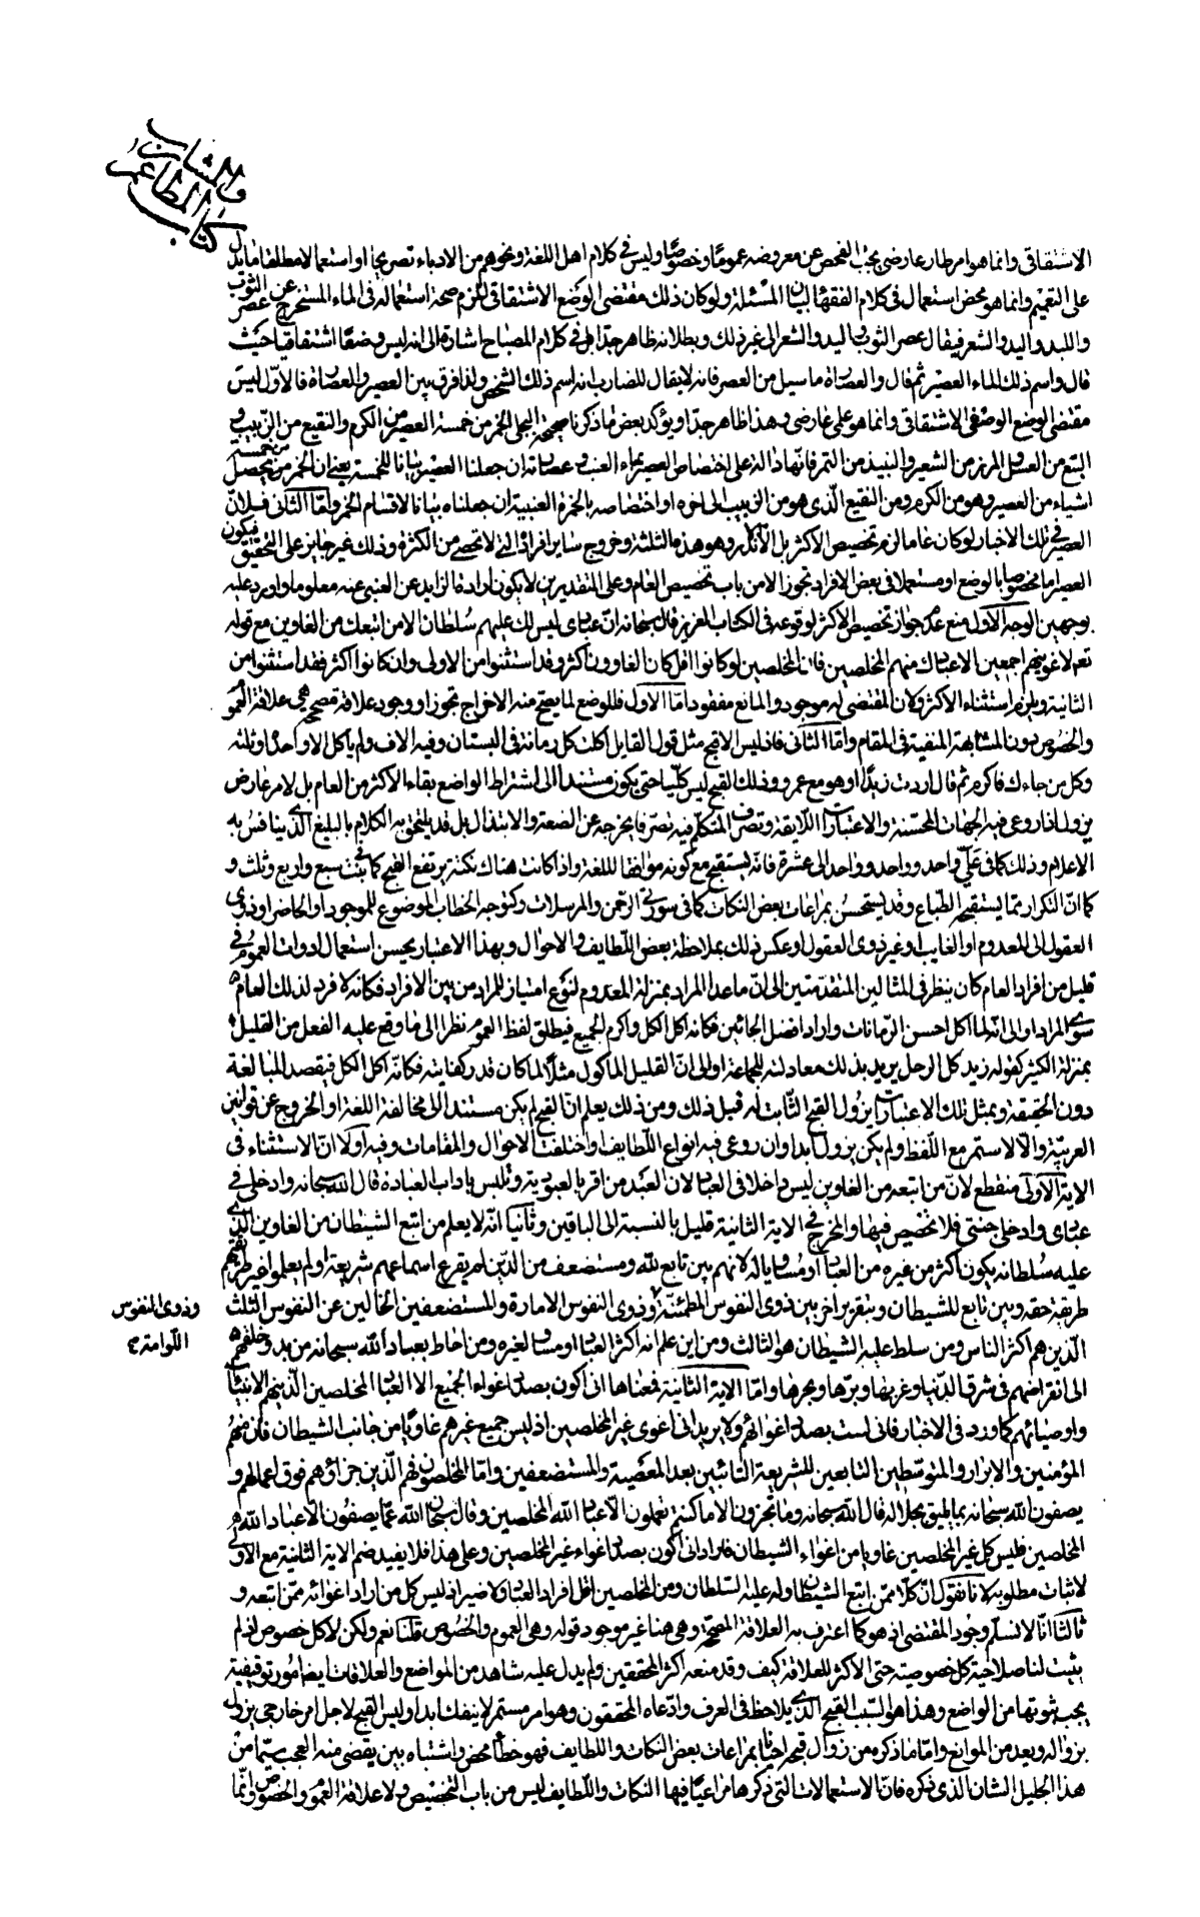 كتاب المطاعم
والمشارب
الاشتقاقى وانما هو امر طار عارضى يجب الفحص عن معروضه عموما وخصوصا وليس فى كلام اهل اللغة ونحوهم من الادباء تصريحا او استعمالا مطلقا ما يدل
على التعميم وانما هو محض استعمال فى كلام الفقهاء لبيان المسئلة ولو كان ذلك مقتضى الوضع الاشتقاقى لزم صحة استعماله فى الماء المستخرج عن عصر الثوب
واللبد واليد والشعر فيقال عصر الثوب واليد والشعر الى غير ذلك وبطلانه ظاهر جدا بل فى كلام المصباح اشارة الى انه ليس وضعا اشتقاقيا حيث
قال واسم ذلك الماء العصير ثم قال والعصارة ما سيل من العصر فانه لا يقال للضارب انه اسم ذلك الشخص ولذا فرق بين العصير والعصارة فالاول ليس
مقتضى الوضع الوصفى الاشتقاقى وانما هو على عارضى وهذا ظاهر جدا ويؤكد بعض ما ذكرنا صحيحة البجلى الخمر من خمسة العصير من الكرم والنقيع من الزبيب و
البتع من العسل والمرز من الشعير والنبيذ من التمر فانها دالة على اختصاص العصير بماء العنب وعصارته ان جعلنا العصير بيانا للخمسة يعنى ان الخمر من خمسة يحصل
اشياء من العصير وهو من الكرم ومن النقيع الذى هو من الزبيب الى اخره او اختصاصه بالخمرة العنبية ان جعلناه بيانا لاقسام الخمر واما الثانى فلان
العصير فى تلك الاخبار لو كان عاما لزم تخصيص الاكثر بل الاندر وهو هذه الثلثة وخروج ساير افراده التى لا تحصى من الكثرة وذلك غير جايز على التحقيق فيكون
العصير اما مخصوصا بالوضع او مستعملا فى بعض الافراد تجوزا لا من باب تخصيص العام وعلى التقديرين لا يكون ارادة الزايد عن العنبى عنه معلوما واورد عليه
بوجهين الوجه الاول منع عدم جواز تخصيص الاكثر لوقوعه فى الكتاب العزيز قال سبحانه ان عبادى ليس لك عليهم سلطان الا من اتبعك من الغاوين مع قوله
تعم لاغوينهم اجمعين الا عبادك منهم المخلصين فان المخلصين لو كانوا اقل كان الغاوون اكثر وقد استثنوا من الاولى وان كانوا اكثر فقد استثنوا من
الثانية ويلزم استثناء الاكثر ولان المقتضى له موجود والمانع مفقود اما الاول فللوضع لما يصح منه الاخراج تجوزا ووجود علاقة مصححة هى علاقة العموم
والخصوص دون المشابهة المنفية فى المقام واما الثانى فاذ ليس الا قبح مثل قول القايل اكلت كل رمانة فى البستان وفيه الاف ولم ياكل الا واحدة او ثلثة
وكل من جاءك فاكرمه ثم قال اردت زيدا او هو مع عمرو وذلك القبح ليس كليا حتى يكون مستندا الى اشتراط الواضع بقاء الاكثر من العام بل لامر عارض
يزول اذا روعى فيه الجهات المحسنة والاعتبارات اللايقة وتصرف المتكلم فيه تصرفا يخرجه عن الضعة والابتذال بل قد يلتحق به الكلام بالبليغ الذى ينافس به
الاعلام وذلك كما فى على واحد وواحد وواحد الى عشرة فانه يستقبح مع كونه موافقا للغة واذا كانت هناك نكتة يرتفع القبح كما فى بنت سبع واربع وثلث و
كما ان التكرار مما يستقبحه الطباع وقد يستحسن بمراعات بعض النكات كما فى سورتى الرحمن والمرسلات وكتوجه الخطاب الموضوع للموجود او الحاضر او ذوى
العقول الى المعدوم او الغايب او غير ذوى العقول او عكس ذلك بملاحظة بعض اللطايف والاحوال وبهذا الاعتبار يحسن استعمال ادوات العموم فى
قليل من افراد العام كان ينظر فى المثالين المتقدمتين الى ان ما عدا المراد بمنزلة المعدوم لنوع امتياز للمراد من بين الافراد فكانه لا فرد لذلك العام
سوى المراد او الى انه لما اكل احسن الرمانات واراد افضل الجائين فكانه اكل الكل واكرم الجميع فيطلق لفظ العموم نظرا الى ما وقع عليه الفعل من القليل
بمنزلة الكثير كقوله زيد كل الرجل يريد بذلك معادلته للجماعة او الى ان القليل الماكول مثلا لما كان قدر كفايته فكانه اكل الكل فيقصد المبالغة
دون الحقيقة وبمثل تلك الاعتبارات يزول القبح الثابت له قبل ذلك ومن ذلك يعلم ان القبح لم يكن مستندا الى مخالفة اللغة او الخروج عن قوانين
العربية والا لاستمر مع اللفظ ولم يكن يزول ابدا وان روعى فيه انواع اللطايف واختلفت الاحوال والمقامات وفيه اولا ان الاستثناء فى
الاية الاولى منقطع لان من اتبعه من الغاوين ليس داخلا فى العباد لان العبد من اقر بالعبودية وتلبس باداب العبادة قال الله سبحانه وادخلى فى
عبادى وادخلى جنتى فلا تخصيص فيها والمخرج فى الاية الثانية قليل بالنسبة الى الباقين وثانيا انه لا يعلم من اتبع الشيطان من الغاوين الذى
عليه سلطانه يكون اكثر من غيره من العباد او مساويا له لانهم بين تابع لله ومستضعف من الذين لم يقرع اسماعهم شريعة او لم يعلموا غير طريقتهم
طريقة حقه وبين تابع للشيطان وبتقرير اخر بين ذوى النفوس المطمئنة وذوى النفوس الامارة والمستضعفين الخالين عن النفوس الثلث
وذوى النفوس
اللوامة ع
الذين هم اكثر الناس ومن سلط عليه الشيطان هو الثالث ومن اين علم انه اكثر العباد او مساو لغيره ومن احاط بعباد الله سبحانه من بدو خلقهم
الى انقراضهم فى شرق الدنيا وغربها وبرها وبحرها واما الاية الثانية فمعناها انى اكون بصدد اغواء الجميع الا العباد المخلصين الذين هم الانبياء
واوصيائهم كما ورد فى الاخبار فانى لست بصدد اغوائهم ولا يريد انى اغوى غير المخلصين اذ ليس جميع غيرهم غاويا من جانب الشيطان فان منهم
المؤمنين والابرار والمتوسطين التابعين للشريعة التائبين بعد المعصية والمستضعفين واما المخلصون فهم الذين جزاؤهم فوق اعمالهم و
يصفون الله سبحانه بما يليق بجلاله قال الله سبحانه وما تجزون الا ما كنتم تعملون الا عباد الله المخلصين وقال سبحان الله عما يصفون الا عباد الله
المخلصين فليس كل غير المخلصين غاويا من اغواء الشيطان فلا رادانى اكون بصدد اغواء غير المخلصين وعلى هذا فلا يفيد ضم الاية الثانية مع الاولى
لاثبات مطلوبه لانا نقول ان كلا ممن اتبع الشيطان وله عليه السلطان ومن المخلصين اقل افراد العباد ولا ضير اذ ليس كل من اراد اغوائه ممن اتبعه و
ثالثا انا لا نسلم وجود المقتضى اذ هو كما اعترف به العلاقة المصححة وهى هنا غير موجود قوله وهى العموم والخصوص قلنا نعم ولكن لا كل خصوص اذ لم
يثبت لنا صلاحية كل خصوصية حتى الاكثر للعلاقة كيف وقد منعه اكثر المحققين ولم يدل عليه شاهد من المواضع والعلاقات ايضا امور توقيفية
يجب ثبوتها من الواضع وهذا هو السبب القبح الذى يلاحظ فى العرف وادعاه المحققون وهو امر مستمر لا ينفك ابدا وليس القبح لاجل امر خارجى يزول
بزواله ويعد من الموانع واما ما ذكره من زوال قبحه احيانا بمراعات بعض النكات واللطايف فهو خطأ محض واشتباه بين يقضى منه العجب سيما من
هذا الجليل الشان الذى ذكره فان الاستعمالات التى ذكرها مراعيا فيها النكات واللطايف ليس من باب التخصيص ولا علاقة العموم والخصوص وانما